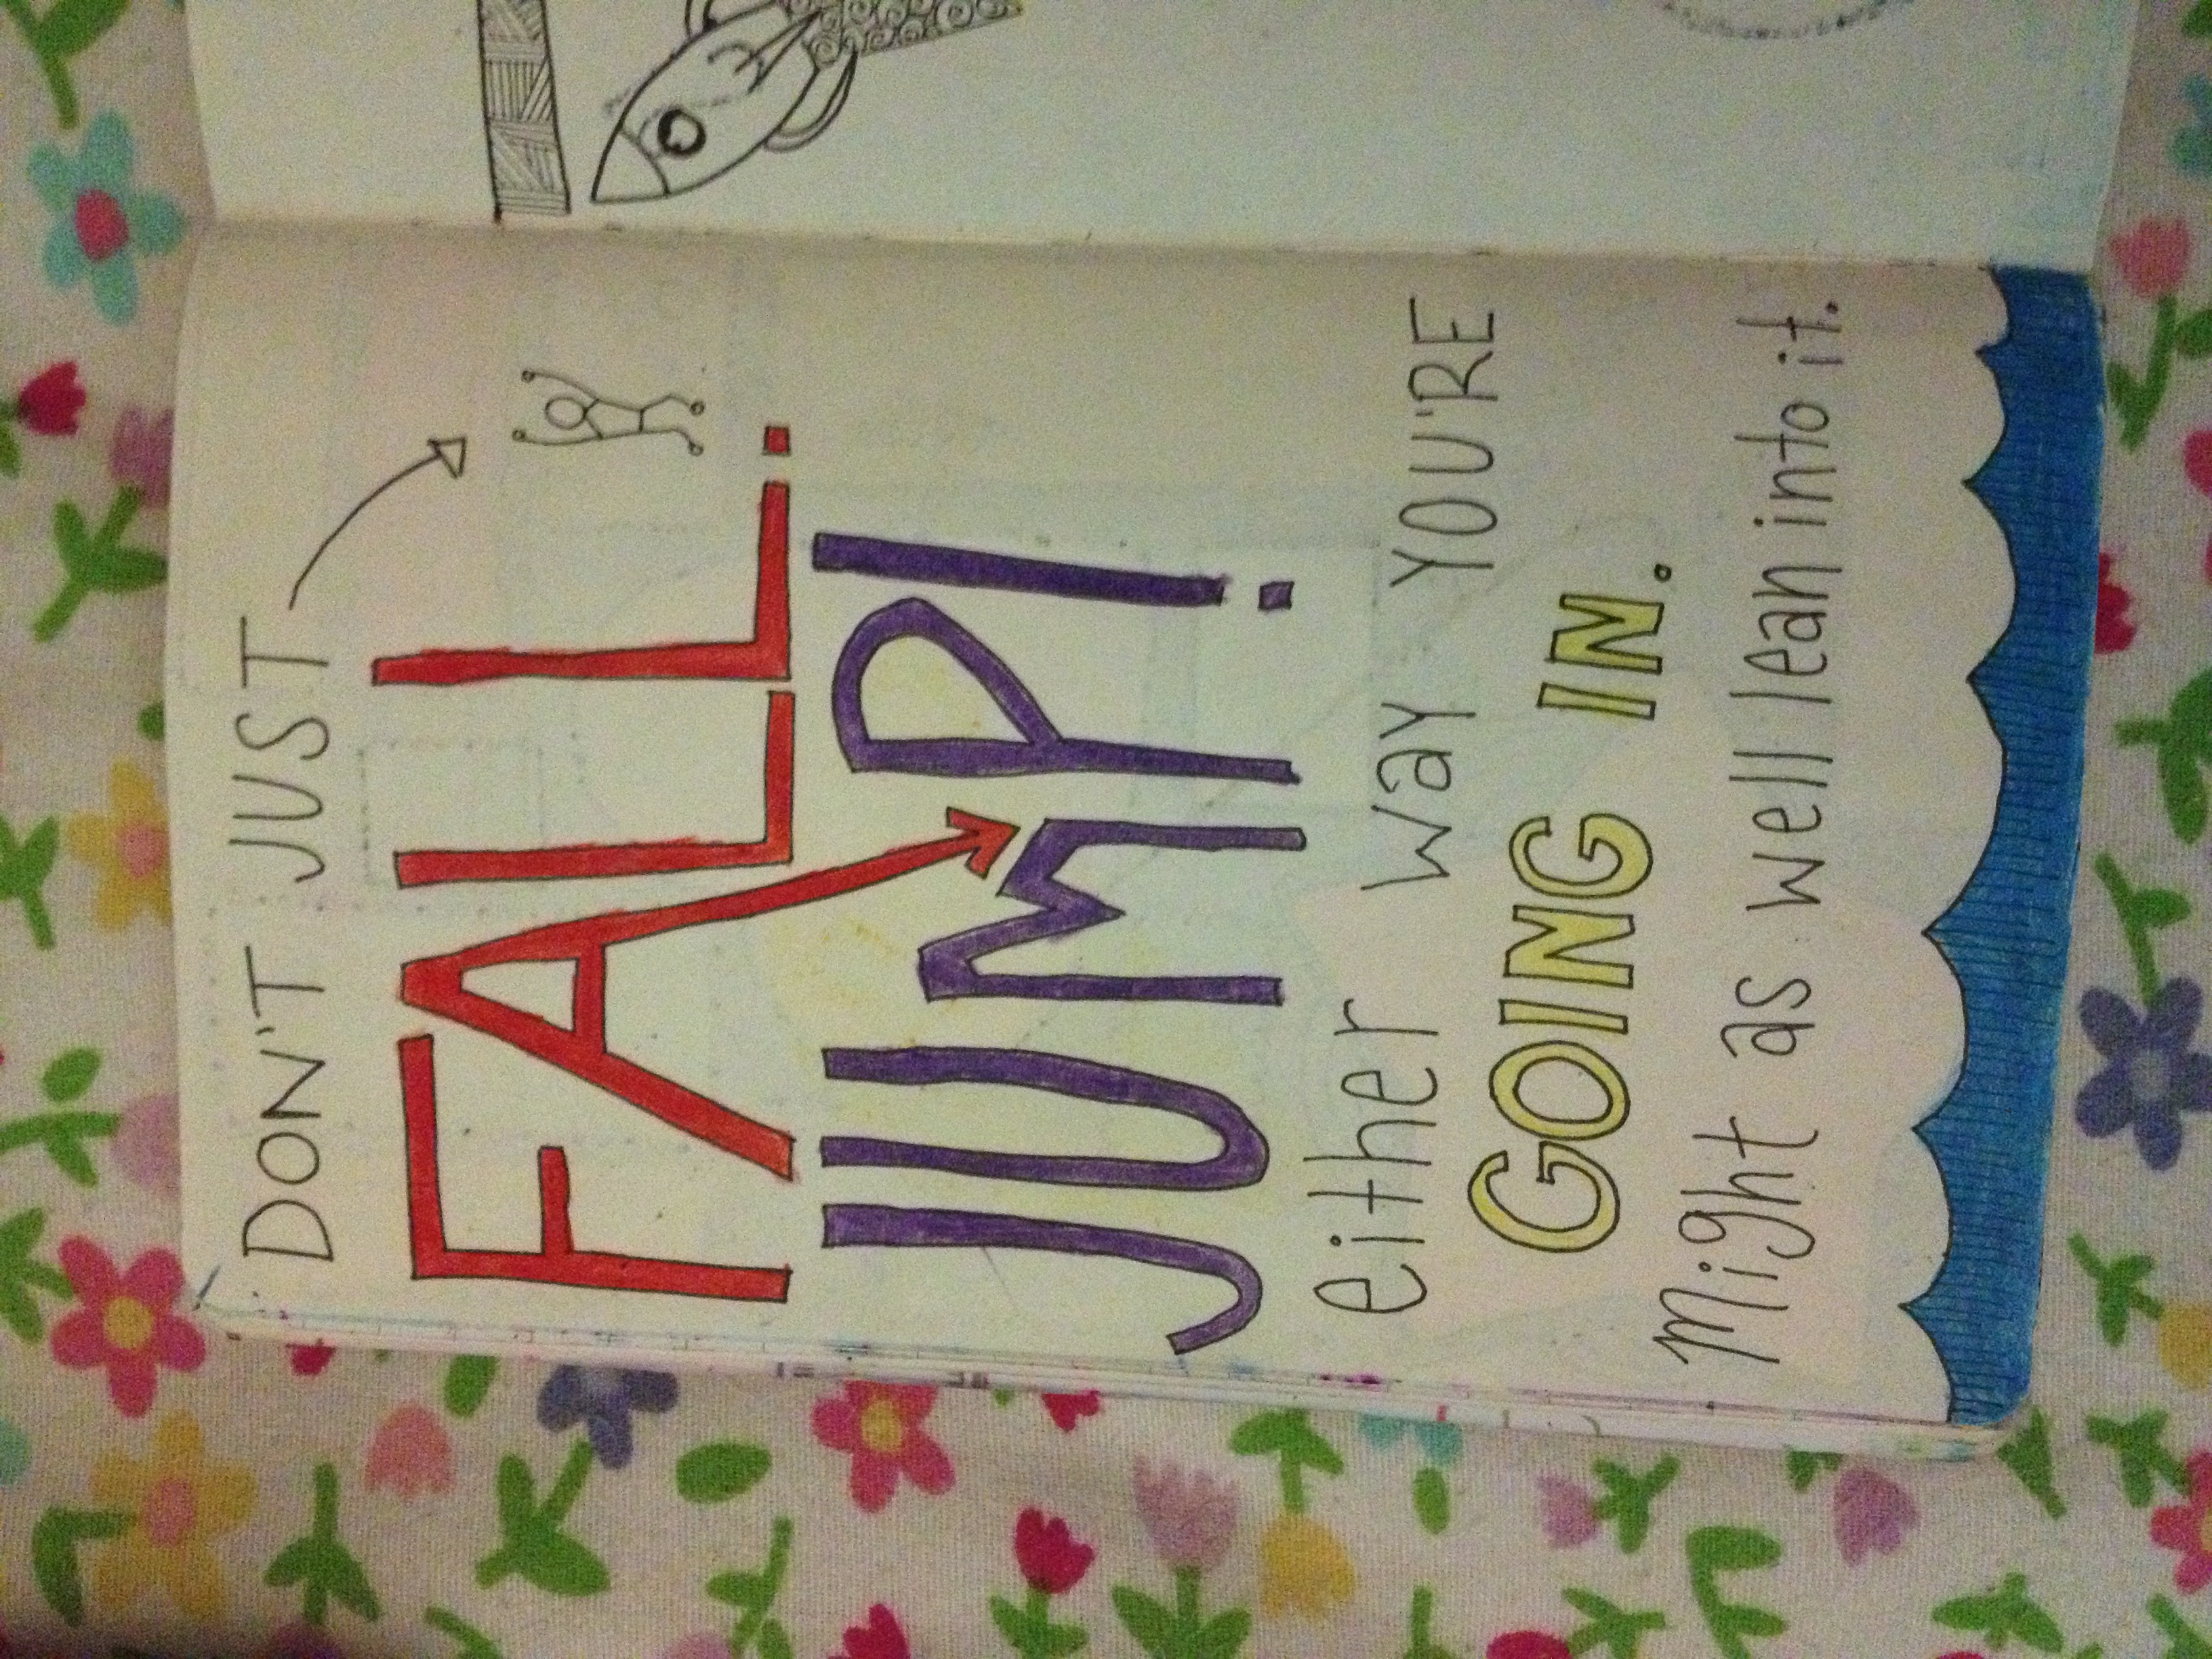 DON'T JUST
FALL.
JUMP!
either way YOU'RE
GOING IN.
Might as well lean into it.